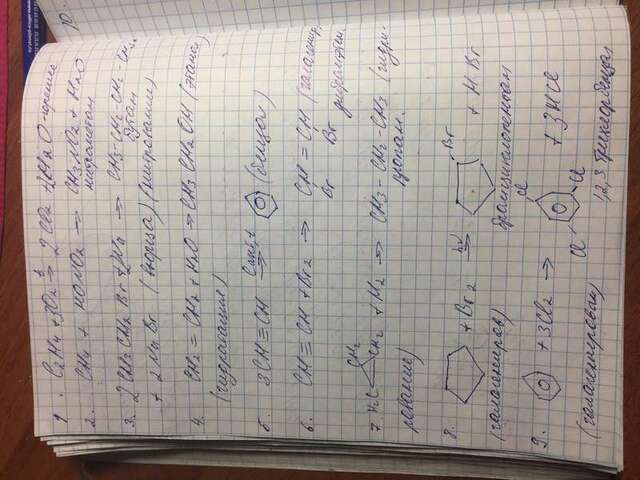 10.
1. C2H4 + 3O2 t→ 2CO2 + 2H2O - горение
2. CH4 + HONO2 → CH3NO2 + H2O
нитрометан
3. 2CH3CH2Br + 2Na → CH3-CH2-CH2-CH3
бутан
+ 2NaBr (Вюрца) (нитрование)
4. CH2 = CH2 + H2O → CH3CH2OH (этанол)
(гидратация)
5. 3CH≡CH Cакт,t→ (бензол)
6. CH≡CH + Br2 → CH = CH (галогенир.
Br Br
7. H2C CH2 CH2 + H2 → CH3-CH2-CH3 (гидри-
пропан.
рование)
8. + Br2 hν→ Br + HBr
(галогениров) бромциклопентан
9. + 3Cl2 → Cl Cl Cl + 3HCl
(галогенирован) 1,2,3 трихлорбензол